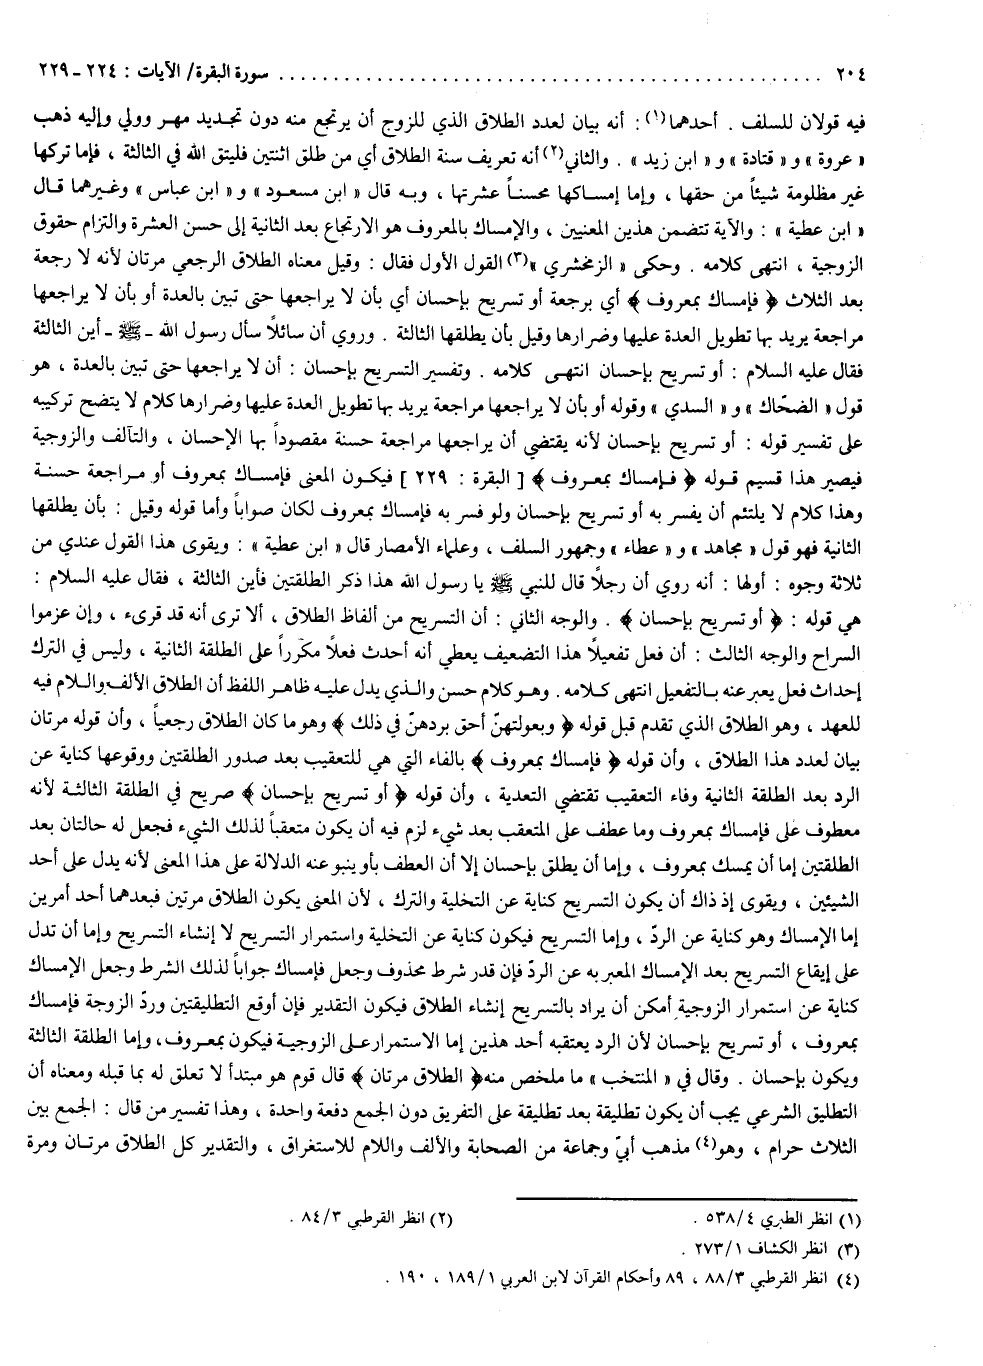 ٢٠٤ ................................................ سورة البقرة/ الآيات : ٢٢٤ - ٢٢٩
فيه قولان للسلف . أحدهما(١) : أنه بيان لعدد الطلاق الذي للزوج أن يرتجع منه دون تجديد مهر وولي وإليه ذهب
« عروة » و« قتادة » و« ابن زيد » . والثاني(٢) أنه تعريف سنة الطلاق أي من طلق اثنتين فليتق الله في الثالثة ، فإما تركها
غير مظلومة شيئاً من حقها ، وإما إمساكها محسناً عشرتها ، وبه قال « ابن مسعود » و« ابن عباس » وغيرهما قال
« ابن عطية » : والآية تتضمن هذين المعنيين ، والإمساك بالمعروف هو الارتجاع بعد الثانية إلى حسن العشرة والتزام حقوق
الزوجية ، انتهى كلامه . وحكى « الزمخشري »(٣) القول الأول فقال : وقيل معناه الطلاق الرجعي مرتان لأنه لا رجعة
بعد الثلاث ﴿ فإمساك بمعروف ﴾ أي برجعة أو تسريح بإحسان أي بأن لا يراجعها حتى تبين بالعدة أو بأن لا يراجعها
مراجعة يريد بها تطويل العدة عليها وضرارها وقيل بأن يطلقها الثالثة . وروي أن سائلاً سأل رسول الله - ﷺ - أين الثالثة
فقال عليه السلام : أو تسريح بإحسان انتهى كلامه . وتفسير التسريح بإحسان : أن لا يراجعها حتى تبين بالعدة ، هو
قول « الضحّاك » و« السدي » وقوله أو بأن لا يراجعها مراجعة يريد بها تطويل العدة عليها وضرارها كلام لا يتضح تركيبه
على تفسير قوله : أو تسريح بإحسان لأنه يقتضي أن يراجعها مراجعة حسنة مقصوداً بها الإحسان ، والتآلف والزوجية
فيصير هذا قسيم قوله ﴿ فإمساك بمعروف ﴾ [ البقرة : ٢٢٩ ] فيكون المعنى فإمساك بمعروف أو مراجعة حسنة
وهذا كلام لا يلتئم أن يفسر به أو تسريح بإحسان ولو فسر به فإمساك بمعروف لكان صواباً وأما قوله وقيل : بأن يطلقها
الثانية فهو قول « مجاهد » و« عطاء » وجمهور السلف ، وعلماء الأمصار قال « ابن عطية » : ويقوى هذا القول عندي من
ثلاثة وجوه : أولها : أنه روي أن رجلًا قال للنبي ﷺ يا رسول الله هذا ذكر الطلقتين فأين الثالثة ، فقال عليه السلام :
هي قوله : ﴿ أو تسريح بإحسان ﴾ . والوجه الثاني : أن التسريح من ألفاظ الطلاق ، ألا ترى أنه قد قرىء ، وإن عزموا
السراح والوجه الثالث : أن فعل تفعيلًا هذا التضعيف يعطي أنه أحدث فعلًا مكرراً على الطلقة الثانية ، وليس في الترك
إحداث فعل يعبر عنه بالتفعيل انتهى كلامه . وهو كلام حسن والذي يدل عليه ظاهر اللفظ أن الطلاق الألف واللام فيه
للعهد ، وهو الطلاق الذي تقدم قبل قوله ﴿ وبعولتهنّ أحق بردهنّ في ذلك ﴾ وهو ما كان الطلاق رجعياً ، وأن قوله مرتان
بيان لعدد هذا الطلاق ، وأن قوله ﴿ فإمساك بمعروف ﴾ بالفاء التي هي للتعقيب بعد صدور الطلقتين ووقوعها كناية عن
الرد بعد الطلقة الثانية وفاء التعقيب تقتضي التعدية ، وأن قوله ﴿ أو تسريح بإحسان ﴾ صريح في الطلقة الثالثة لأنه
معطوف على فإمساك بمعروف وما عطف على المتعقب بعد شيء لزم فيه أن يكون متعقباً لذلك الشيء فجعل له حالتان بعد
الطلقتين إما أن يمسك بمعروف ، وإما أن يطلق بإحسان إلا أن العطف بأو ينبو عنه الدلالة على هذا المعنى لأنه يدل على أحد
الشيئين ، ويقوى إذ ذاك أن يكون التسريح كناية عن التخلية والترك ، لأن المعنى يكون الطلاق مرتين فبعدهما أحد أمرين
إما الإمساك وهو كناية عن الردّ ، وإما التسريح فيكون كناية عن التخلية واستمرار التسريح لا إنشاء التسريح وإما أن تدل
على إيقاع التسريح بعد الإمساك المعبر به عن الردّ فإن قدر شرط محذوف وجعل فإمساك جواباً لذلك الشرط وجعل الإمساك
كناية عن استمرار الزوجية أمكن أن يراد بالتسريح إنشاء الطلاق فيكون التقدير فإن أوقع التطليقتين وردّ الزوجة فإمساك
بمعروف ، أو تسريح بإحسان لأن الرد يعتقبه أحد هذين إما الاستمرار على الزوجية فيكون بمعروف، وإما الطلقة الثالثة
ويكون بإحسان . وقال في « المنتخب » ما ملخص منه ﴿ الطلاق مرتان ﴾ قال قوم هو مبتدأ لا تعلق له بما قبله ومعناه أن
التطليق الشرعي يجب أن يكون تطليقة بعد تطليقة على التفريق دون الجمع دفعة واحدة ، وهذا تفسير من قال : الجمع بين
الثلاث حرام ، وهو(٤) مذهب أبيّ وجماعة من الصحابة والألف واللام للاستغراق ، والتقدير كل الطلاق مرتان ومرة
(١) انظر الطبري ٥٣٨/٤ . (٢) انظر القرطبي ٨٤/٣ .
(٣) انظر الكشاف ٢٧٣/١ .
(٤) انظر القرطبي ٨٨/٣ ، ٨٩ وأحكام القرآن لابن العربي ١٨٩/١ ، ١٩٠ .